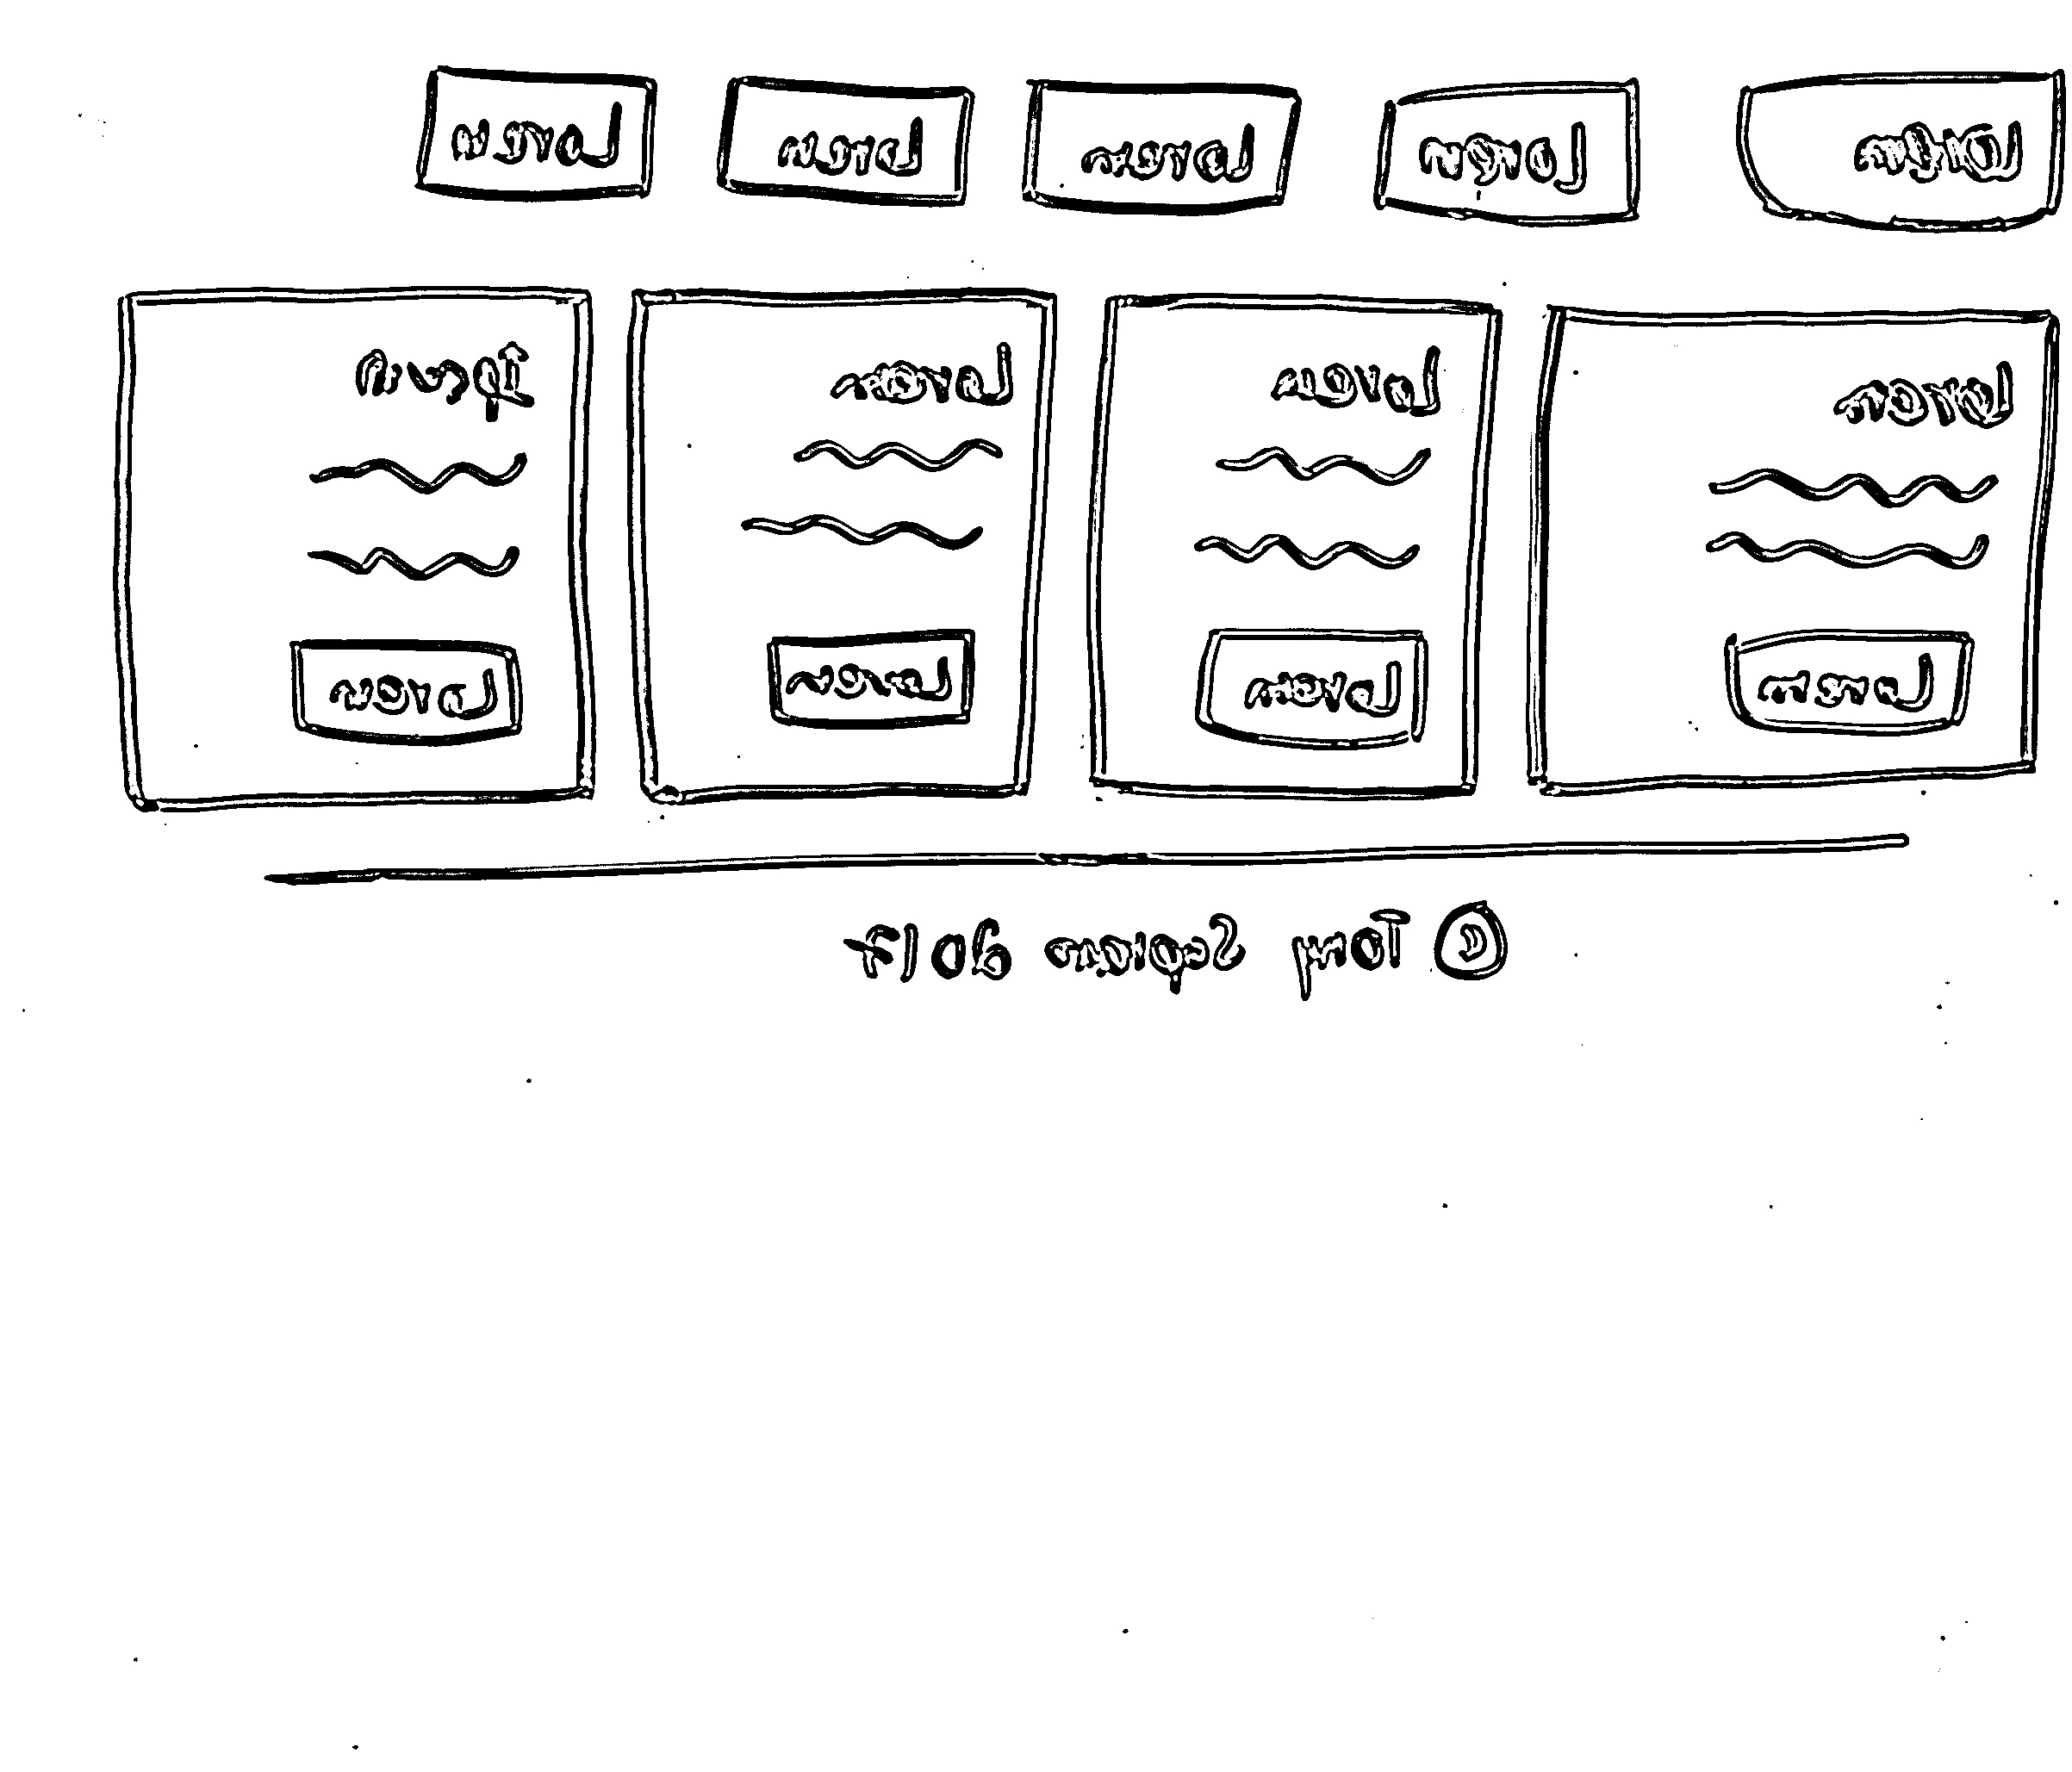 Lorem Lorem Lorem Lorem Lorem
Lorem Lorem Lorem Ipsum
Lorem Lorem Lorem Lorem
© Tony 2017